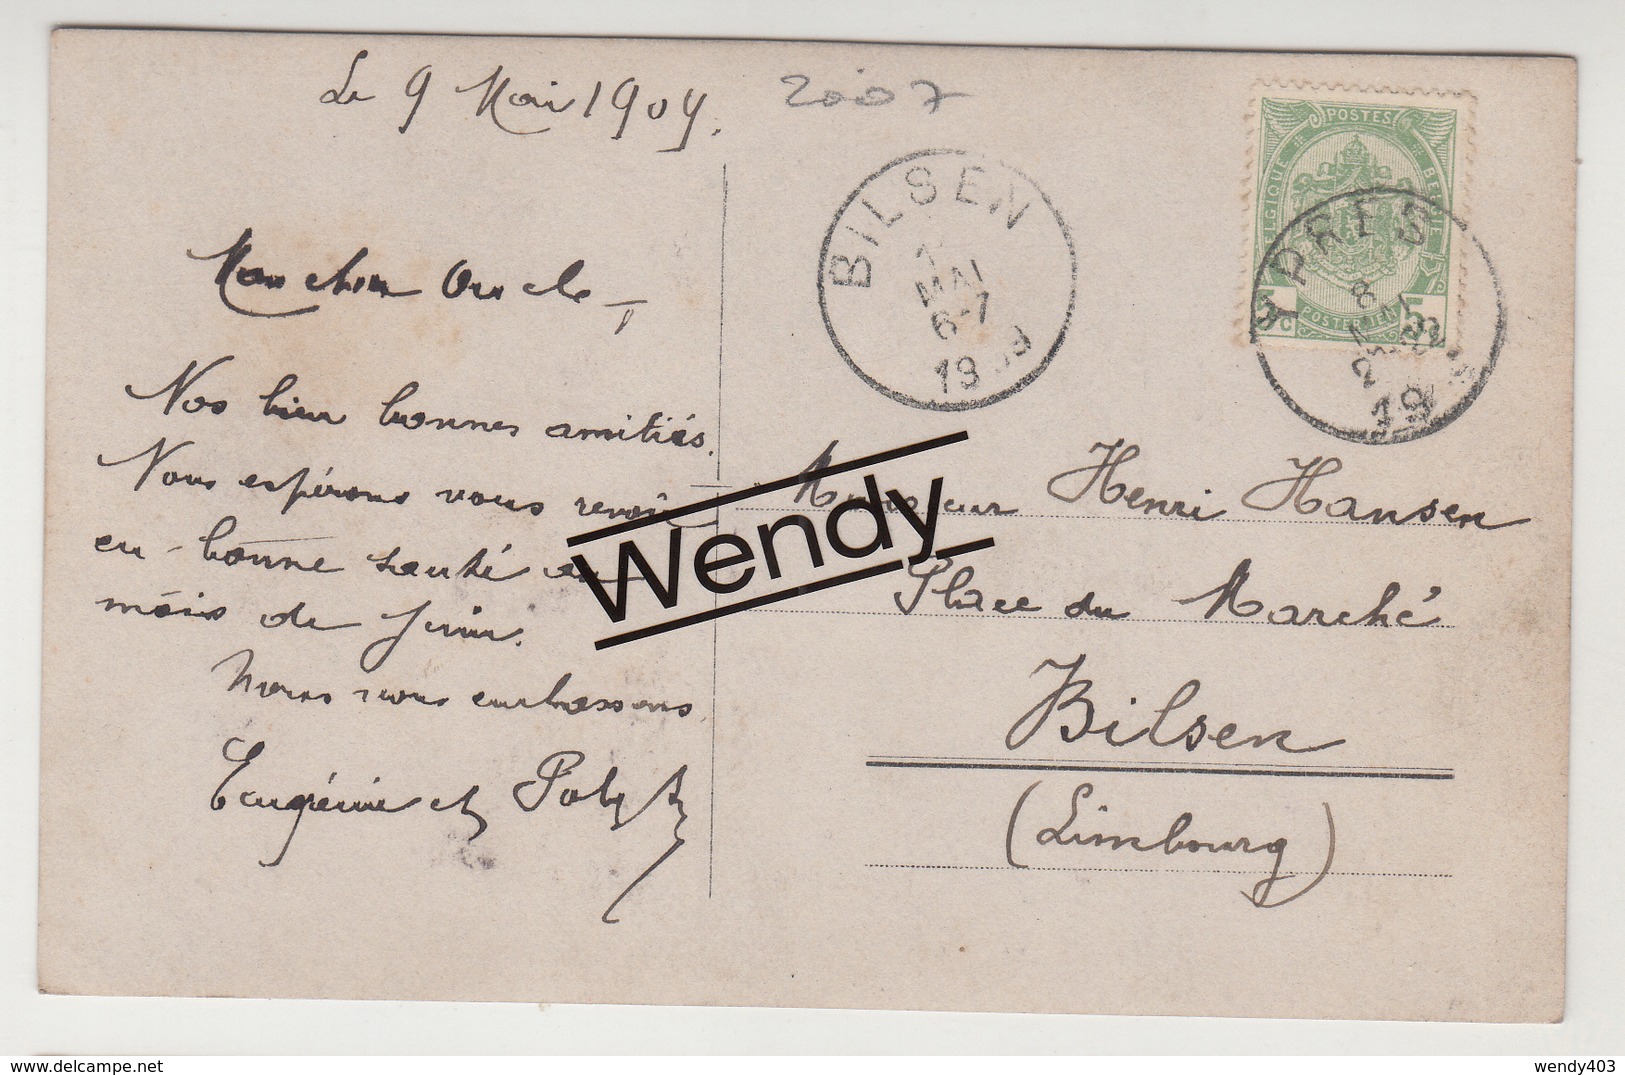 Le 9 Mai 1909.
2007
Mon cher Oncle
Nos bien bonnes amitiés.
Nous espérons vous revoir
en bonne santé au
mois de juin.
Nous vous embrassons
Eugénie et
BILSEN
MAI
6-7
POSTES
BELGIQUE
BELGIË
POSTERIJEN
5
YPRES
8
19
Monsieur Henri Hansen
Place du Marché
Bilsen
(Limbourg)
Wendy
wendy403